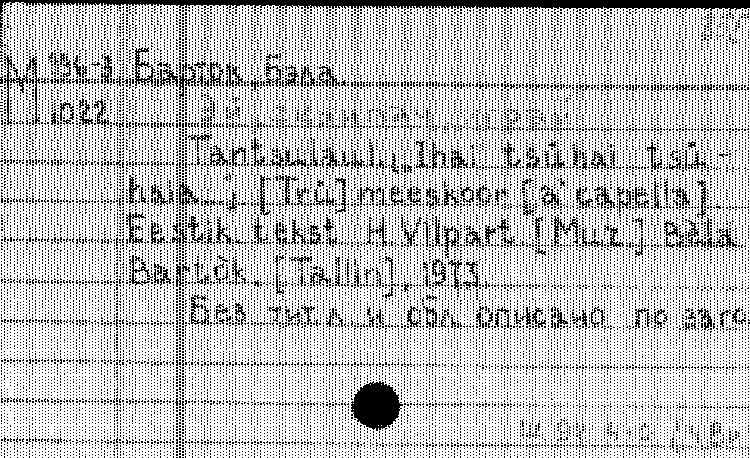 М 934-3 Барток, Бэла.
1022
Tantsulaul: "Ihai tsuhai tsu-
haia..." [Trü] meeskoor [a' capella]
Eestik. tekst H. Vilpart [Muz.] Bèla
Bartòk. [Tallin], 1973.
Без тит. л. и обл. описано по заго